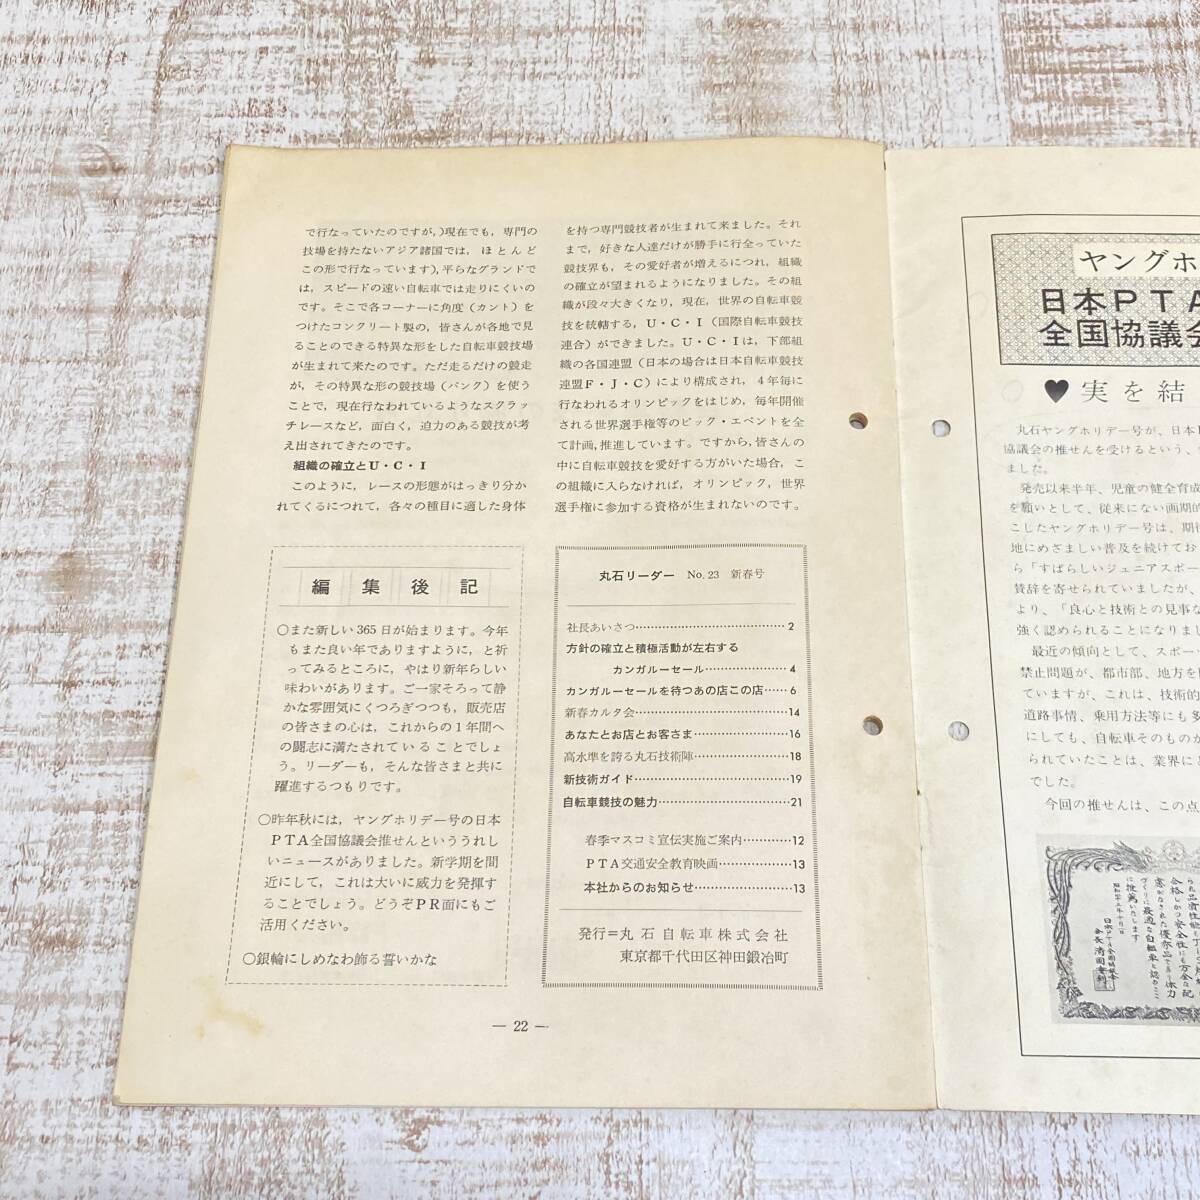 で行なっていたのですが，)現在でも，専門の
技場を持たないアジア諸国では，ほとんど
この形で行なっています)，平らなグランドで
は，スピードの速い自転車では走りにくいの
です。そこで各コーナーに角度（カント）を
つけたコンクリート製の，皆さんが各地で見
ることのできる特異な形をした自転車競技場
が生まれて来たのです。ただ走るだけの競走
が，その特異な形の競技場（バンク）を使う
ことで，現在行なわれているようなスクラッ
チレースなど，面白く，迫力のある競技が考
え出されてきたのです。
組織の確立とU・C・I
このように，レースの形態がはっきり分か
れてくるにつれて，各々の種目に適した身体
を持つ専門競技者が生まれて来ました。それ
まで，好きな人達だけが勝手に行全っていた
競技界も，その愛好者が増えるにつれ，組織
の確立が望まれるようになりました。その組
織が段々大きくなり，現在，世界の自転車競
技を統轄する，U・C・I（国際自転車競技
連合）ができました。U・C・Iは，下部組
織の各国連盟（日本の場合は日本自転車競技
連盟F・J・C）により構成され，4年毎に
行なわれるオリンピックをはじめ，毎年開催
される世界選手権等のビック・エベントを全
て計画，推進しています。ですから，皆さんの
中に自転車競技を愛好する方がいた場合，こ
の組織に入らなければ，オリンピック，世界
選手権に参加する資格が生まれないのです。
編集後記
○また新しい365日が始まります。今年
もまた良い年でありますように，と祈
ってみるところに，やはり新年らしい
味わいがあります。ご一家そろって静
かな雰囲気にくつろぎつつも，販売店
の皆さまの心は，これからの1年間へ
の闘志に満たされていることでしょ
う。リーダーも，そんな皆さまと共に
躍進するつもりです。
○昨年秋には，ヤングホリデー号の日本
PTA全国協議会推せんといううれし
いニュースがありました。新学期を間
近にして，これは大いに威力を発揮す
ることでしょう。どうぞPR面にもご
活用ください。
○銀輪にしめなわ飾る誓いかな
丸石リーダー No.23 新春号
社長あいさつ……………………………2
方針の確立と積極活動が左右する
カンガルーセール………………4
カンガルーセールを待つあの店この店……6
新春カルタ会……………………………14
あなたとお店とお客さま…………………16
高水準を誇る丸石技術陣…………………18
新技術ガイド……………………………19
自転車競技の魅力………………………21
春季マスコミ宣伝実施ご案内…………12
PTA交通安全教育映画………………13
本社からのお知らせ…………………13
発行＝丸石自転車株式会社
東京都千代田区神田鍛冶町
— 22 —
ヤングホ
日本PTA
全国協議会
♥実を結
丸石ヤングホリデー号が、日本P
協議会の推せんを受けるという、
ました。
発売以来半年、児童の健全育成
を願いとして、従来にない画期的
こしたヤングホリデー号は、期待
地にめざましい普及を続けてお
ら「すばらしいジュニアスポー
賛辞を寄せられていましたが、
より、「良心と技術との見事な
強く認められることになりまし
最近の傾向として、スポー
禁止問題が、都市部、地方を
ていますが、これは、技術的
道路事情、乗用方法等にも多
にしても、自転車そのものか
られていたことは、業界にと
でした。
今回の推せんは、この点